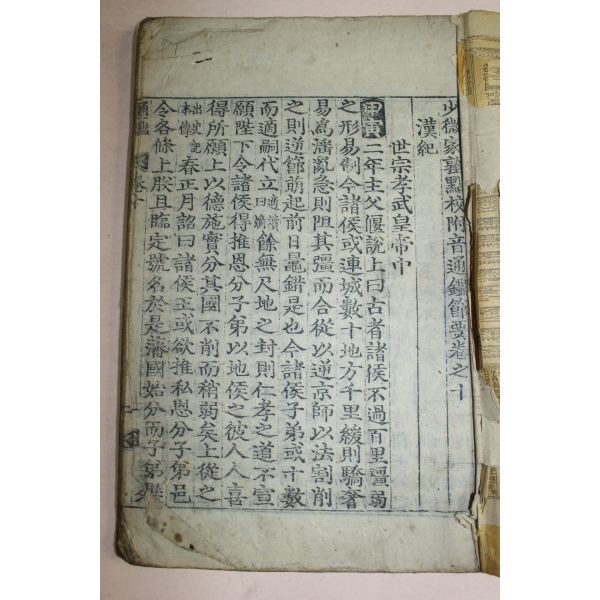 少微家塾點校附音通鑑節要卷之十
漢紀
世宗孝武皇帝中
甲寅二年主父偃說上曰古者諸侯不過百里彊弱
之形易制今諸侯或連城數十地方千里緩則驕奢
易爲淫亂急則阻其彊而合從以逆京師以法割削
之則逆節萌起前日鼂錯是也今諸侯子弟或十數
而適嗣代立適讀曰嫡餘無尺地之封則仁孝之道不宣
願陛下令諸侯得推恩分子弟以地侯之彼人人喜
得所願上以德施實分其國不削而稍弱矣上從之
出史記本傳春正月詔曰諸侯王或欲推私恩分子弟邑
令各條上朕且臨定號名於是藩國始分而子弟畢
通鑑 卷十